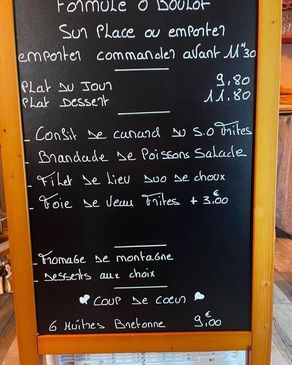 Formule O Boulot
Sur Place ou emporter
emporter commander avant 11h30
Plat du Jour 9,80
Plat Dessert 11.80
- Confit de canard du S.O Frites
- Brandade de Poissons Salade
- Filet de Lieu Duo de choux
- Foie de Veau Frites + 3,00
- Fromage de montagne
- Desserts aux choix
Coup de coeur
6 Huitres Bretonne 9,00